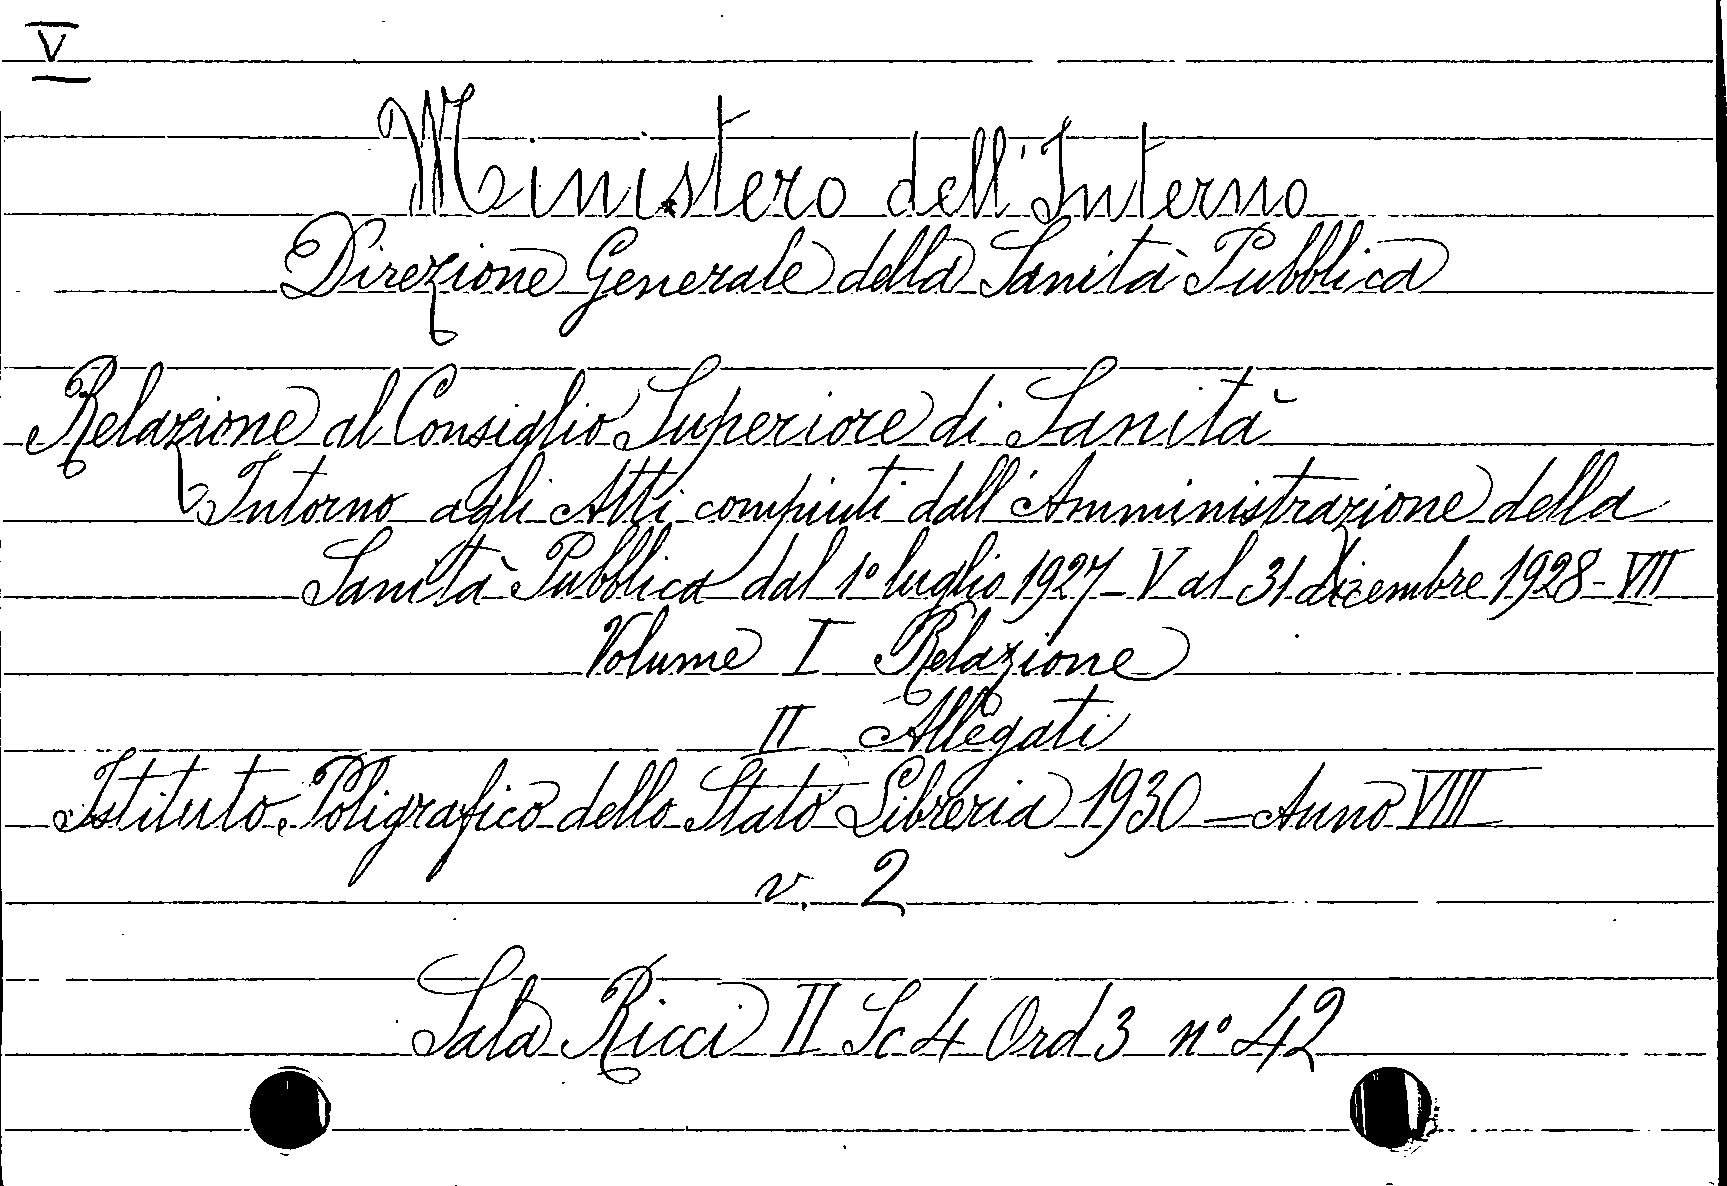 V
Ministero dell'Interno
Direzione Generale della Sanità Pubblica
Relazione al Consiglio Superiore di Sanità
Intorno agli Atti compiuti dall'Amministrazione della
Sanità Pubblica dal 1° luglio 1927-V al 31 dicembre 1928-VII
Volume I Relazione
II Allegati
Istituto Poligrafico dello Stato Libreria 1930 - Anno VIII
v. 2
Sala Ricci II Sc 4 Ord 3 n° 42